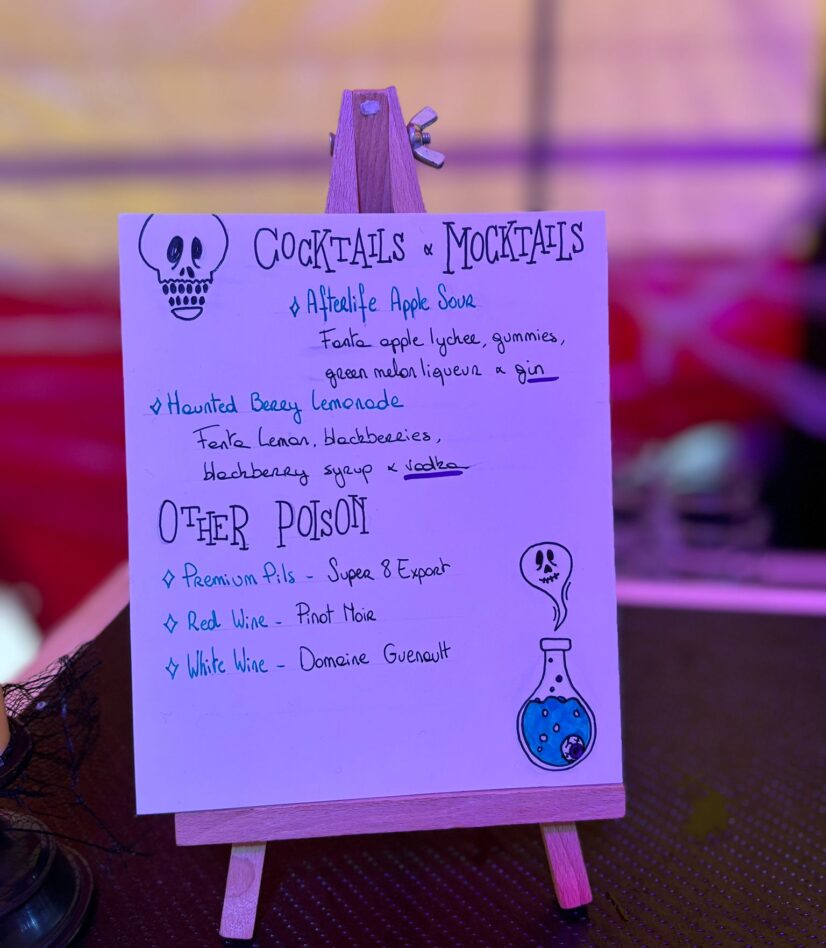 COCKTAILS & MOCKTAILS
Afterlife Apple Sour
Fanta apple lychee, gummies,
green melon liqueur & gin
Haunted Berry Lemonade
Fanta Lemon, blackberries,
blackberry syrup & vodka
OTHER POISON
Premium Pils - Super 8 Export
Red Wine - Pinot Noir
White Wine - Domaine Guenault